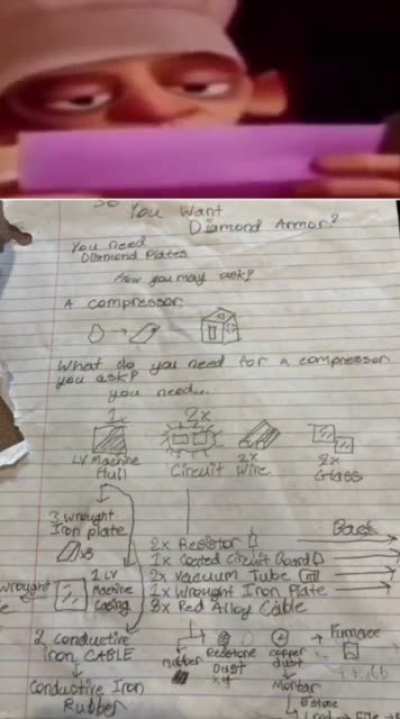 So
You Want
Diamond Armor?
You need
Diamond Plates
How you may ask?
A compressor
What do you need for a compressor
you ask?
you need...
1 2x
LV Machine
Hull
Circuit
2x
Wire
2x
Glass
3 wrought
Iron plate
x8
2x Resistor
Back
1x Coated Circuit Board
2x Vacuum Tube
1x Wrought Iron Plate
3x Red Alloy Cable
wrought
1 LV
Machine
Casing
2 conductive
iron CABLE
Conductive Iron
Rubber
rubber
Redstone
Dust
x4
copper
dust
Furnace
Mortar